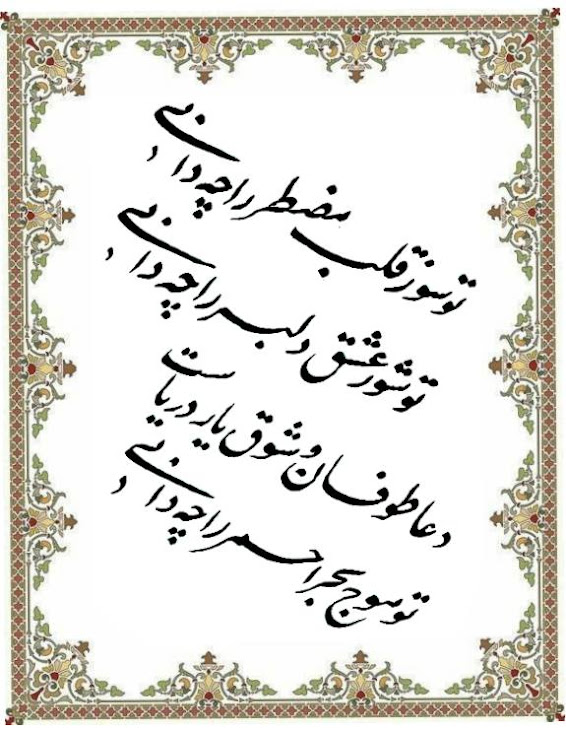 تو سوز قلب مضطر را چه دانی
تو شور عشق دلبر را چه دانی
دعا طوفان و شوق یار دریاست
تو موج بحر احمر را چه دانی